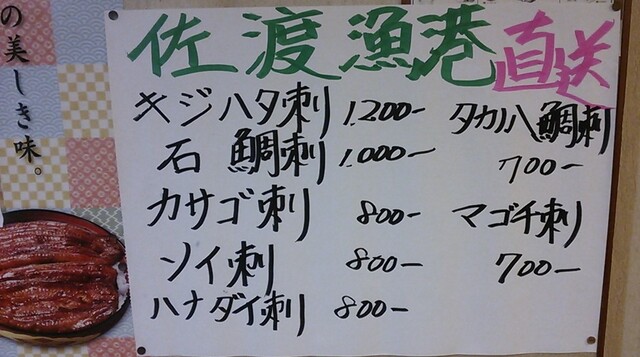 の美しき味。
佐渡漁港直送
キジハタ刺 1,200-
石鯛刺 1,000-
カサゴ刺 800-
ソイ刺 800-
ハナダイ刺 800-
タカノハ鯛刺
700-
マゴチ刺
700-